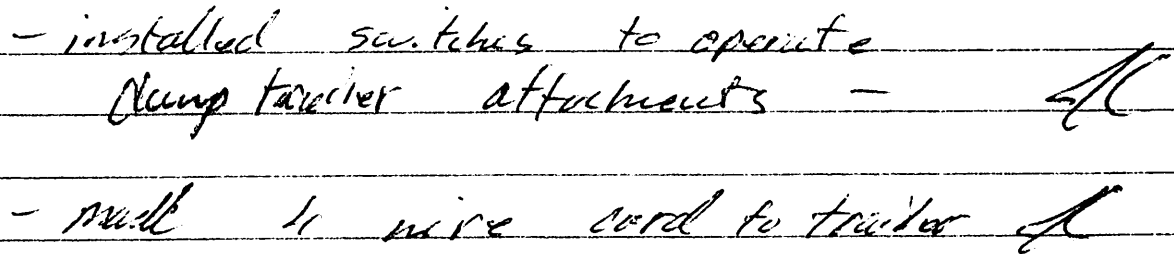 - installed switches to operate
dump trailer attachments -
- made 4 wire cord to trailer